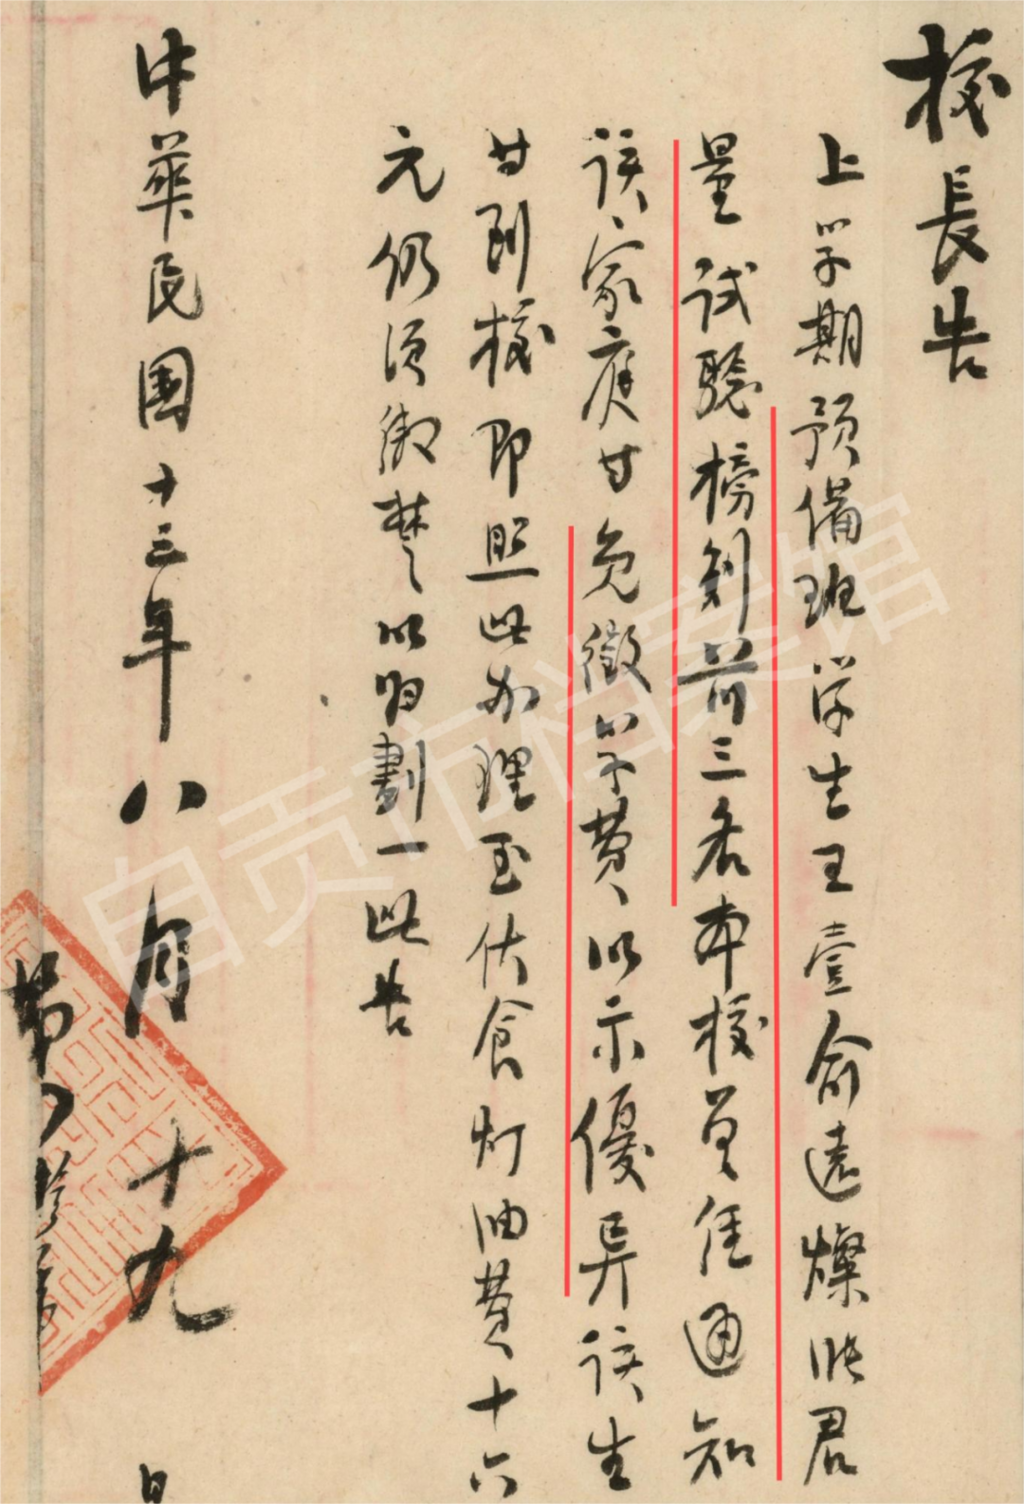 校長告
上学期預備班学生王壹俞遠燦張君
量試驗榜列前三名本校曾經通知
該家庭等免徵学費以示優異該生
等到校即照此办理至伙食灯油費十六
元仍須繳楚以归劃一此告
中華民國十三年八月十九日
自贡市档案馆